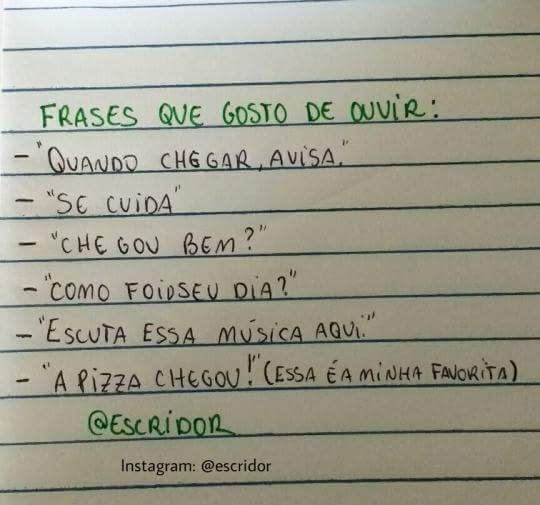 FRASES QUE GOSTO DE OUVIR:
- "QUANDO CHEGAR, AVISA."
- "SE CUIDA"
- "CHEGOU BEM?"
- "COMO FOI O SEU DIA?"
- "ESCUTA ESSA MÚSICA AQUI."
- "A PIZZA CHEGOU!" (ESSA É A MINHA FAVORITA)
@ESCRIDOR
Instagram: @escridor